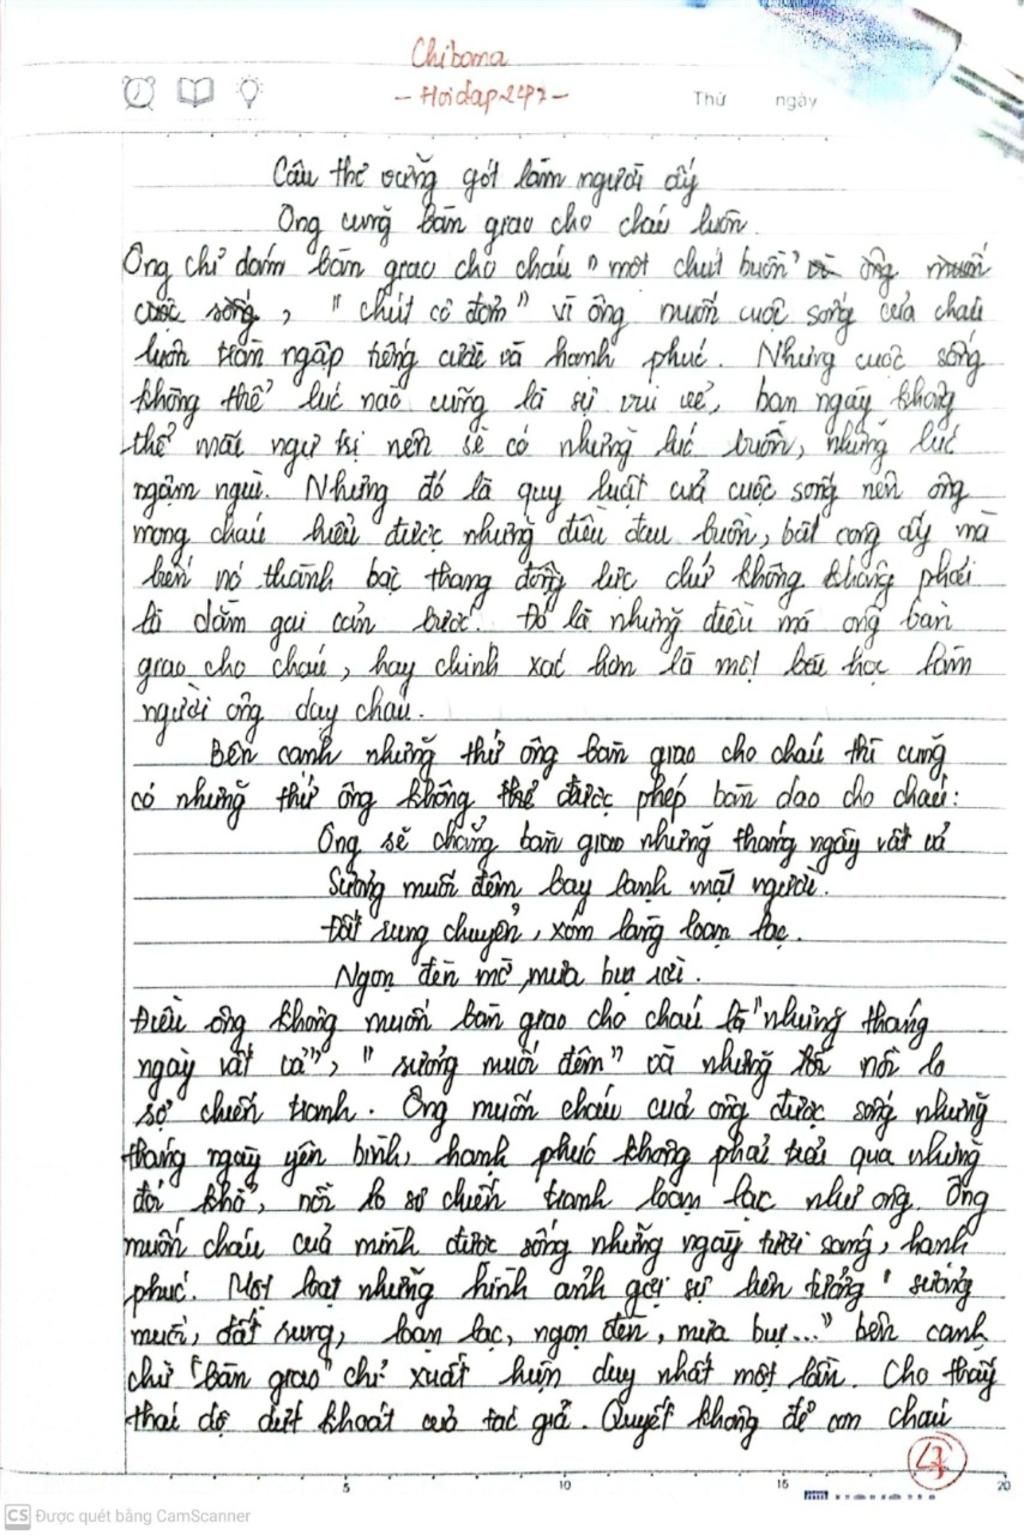 Chiboma
- Hoidap247 -
Thứ ngày
Câu thơ vững gót làm người ấy
Ông cũng bàn giao cho cháu luôn.
Ông chỉ dám bàn giao cho cháu "một chút buồn" ông
, "chút cô đơn" vì ông muốn cuộc sống của cháu
luôn tràn ngập tiếng cười và hạnh phúc. Nhưng cuộc sống
không thể lúc nào cũng là sự vui vẻ, ban ngày không
thể mãi ngự trị nên sẽ có những lúc buồn, những lúc
ngậm ngùi. Nhưng đó là quy luật của cuộc sống nên ông
mong cháu hiểu được những điều đau buồn, bất công ấy mà
biến nó thành bậc thang động lực chứ không không phải
là dằm gai cản bước. Đó là những điều mà ông bàn
giao cho cháu, hay chính xác hơn là một bài học làm
người ông dạy cháu.
Bên cạnh những thứ ông bàn giao cho cháu thì cũng
có những thứ ông không thể được phép bàn dao cho cháu:
Ông sẽ chẳng bàn giao những tháng ngày vất vả
Sương muối đêm bay lạnh mặt người.
Đất rung chuyển, xóm làng loạn lạc.
Ngọn đèn mờ, mưa bụi rơi.
Điều ông không muốn bàn giao cho cháu là "những tháng
ngày vất vả", "sương muối đêm" và những nỗi lo
sợ chiến tranh. Ông muốn cháu của ông được sống những
tháng ngày yên bình, hạnh phúc không phải trải qua những
đói khổ, nỗi lo sợ chiến tranh loạn lạc như ông. Ông
muốn cháu của mình được sống những ngày tươi sáng, hạnh
phúc. Một loạt những hình ảnh gợi sự liên tưởng "sương
muối, đất rung, loạn lạc, ngọn đèn, mưa bụi..." bên cạnh
chữ "bàn giao" chỉ xuất hiện duy nhất một lần. Cho thấy
thái độ dứt khoát của tác giả. Quyết không để con cháu
5 10 15 20
CS Được quét bằng CamScanner